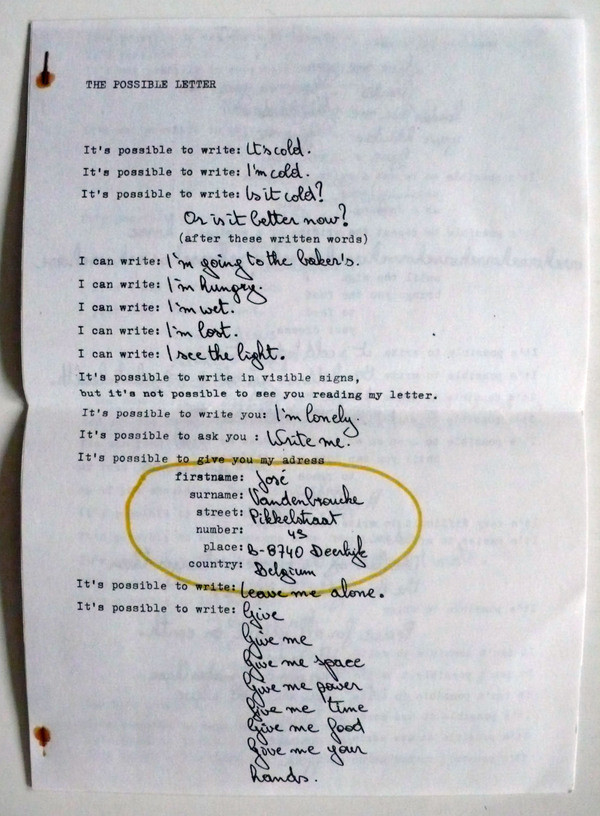 THE POSSIBLE LETTER
It's possible to write: It's cold.
It's possible to write: I'm cold.
It's possible to write: Is it cold?
Or is it better now?
(after these written words)
I can write: I'm going to the baker's.
I can write: I'm hungry.
I can write: I'm wet.
I can write: I'm lost.
I can write: I see the light.
It's possible to write in visible signs,
but it's not possible to see you reading my letter.
It's possible to write you: I'm lonely.
It's possible to ask you : Write me.
It's possible to give you my adress
firstname: José
surname: Vandenbroucke
street: Pikkelstraat
number: 49
place: B-8740 Deerlijk
country: Belgium
It's possible to write: Leave me alone.
It's possible to write: Give
Give me
Give me space
Give me power
Give me time
Give me food
Give me your
hands.